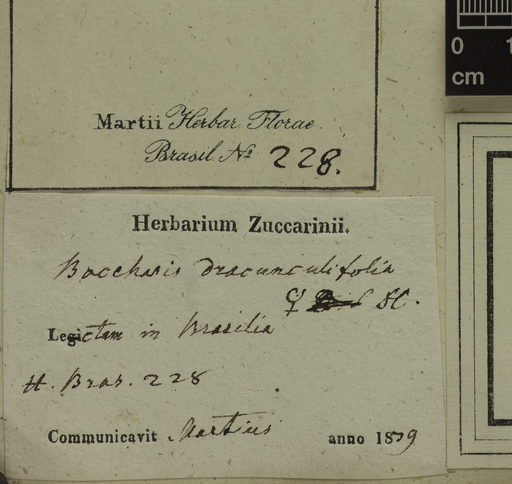 0 1
cm
Martii Herbar. Florae
Brasil Nº 228.
Herbarium Zuccarinii.
Baccharis dracunculifolia
DC.
Legictam in Brasilia
H. Bras. 228
Communicavit Martius anno 1839